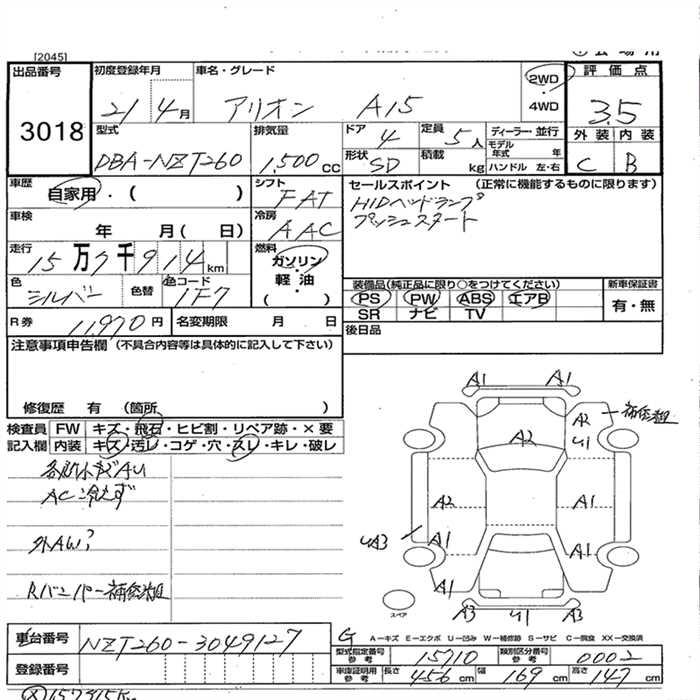 [2045]
出品番号
3018
初度登録年月
21 4月
車名・グレード
アリオン A15
2WD
・
4WD
評価点
3.5
外装 内装
C B
型式
DBA-NZT260
排気量
1,500cc
ドア
4
定員
5人
形状
SD
積載
kg
ディーラー・並行
モデル年式 年
ハンドル 左・右
車歴
自家用・( )
シフト
FAT
車検
年 月( 日)
冷房
AAC
走行
15万7千914km
燃料
ガソリン・
軽・油・
( )
色
シルバー
色替
色コード
1F7
R券
11,970円
名変期限 月 日
セールスポイント (正常に機能するものに限ります)
HIDヘッドランプ
プッシュスタート
装備品(純正品に限り○をつけてください)
PS PW ABS エアB
SR ナビ TV
新車保証書
有・無
後日品
注意事項申告欄(不具合内容等は具体的に記入して下さい)
修復歴 有 (箇所 )
検査員 FW キズ・飛石・ヒビ割・リペア跡・×要
記入欄 内装 キズ・汚レ・コゲ・穴・スレ・キレ・破レ
各所小キズAU
AC冷えず
外AW?
Rバンパー補修粗
A1 A1
A2
A2 補修粗
U1
A2 A1
UA3
A1 A1
A1 A1
A3 U1 A3
スペア
G A-キズ E-エクボ U-凹み W-補修跡 S-サビ C-腐食 XX-交換済
車台番号
NZT260-3049127
登録番号
型式指定番号参考
15710
類別区分番号参考
0002
車庫証明用参考
長さ 456cm
幅 169cm
高さ 147cm